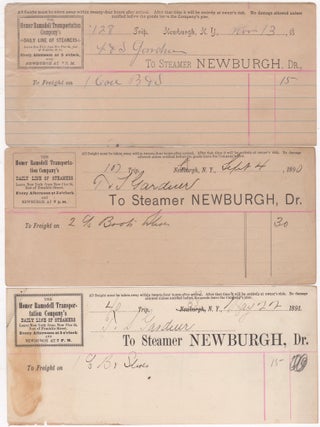 All freight must be taken away within twenty-four hours after arrival. After that time it will be entirely at owner's risk. No damage allowed unless
notified before the goods leave the Company's pier.
THE
Homer Ramsdell Transportation
Company's
DAILY LINE OF STEAMERS
NEWBURGH AT 7 P. M.
128 Trip. Newburgh, N. Y., Nov 13
To STEAMER NEWBURGH, DR.,
To Freight on 1 Case B&S 15
All freight must be taken away within twenty-four hours after arrival. After that time it will be entirely at owner's risk. No damage allowed unless
notified before the goods leave the Company's pier.
THE
Homer Ramsdell Transporta-
tion Company's
DAILY LINE OF STEAMERS
Leave New York from New Pier 24,
foot of Franklin Street,
Every Afternoon at 5 o'clock
and
NEWBURGH AT 7 P. M.
107 Trip. Newburgh, N. Y., Sept 4, 1890
T & S Gardner
To Steamer NEWBURGH, Dr.
To Freight on 2 Cs Boots Shoes 30
THE
Homer Ramsdell Transpor-
tation Company's
DAILY LINE OF STEAMERS
Leave New York from New Pier 24,
foot of Franklin Street,
Every Afternoon at 5 o'clock
and
NEWBURGH AT 7 P. M.
Trip. Newburgh, N. Y., May 22 1891
Gardner
To Steamer NEWBURGH, Dr.
To Freight on 1 Shoes 15